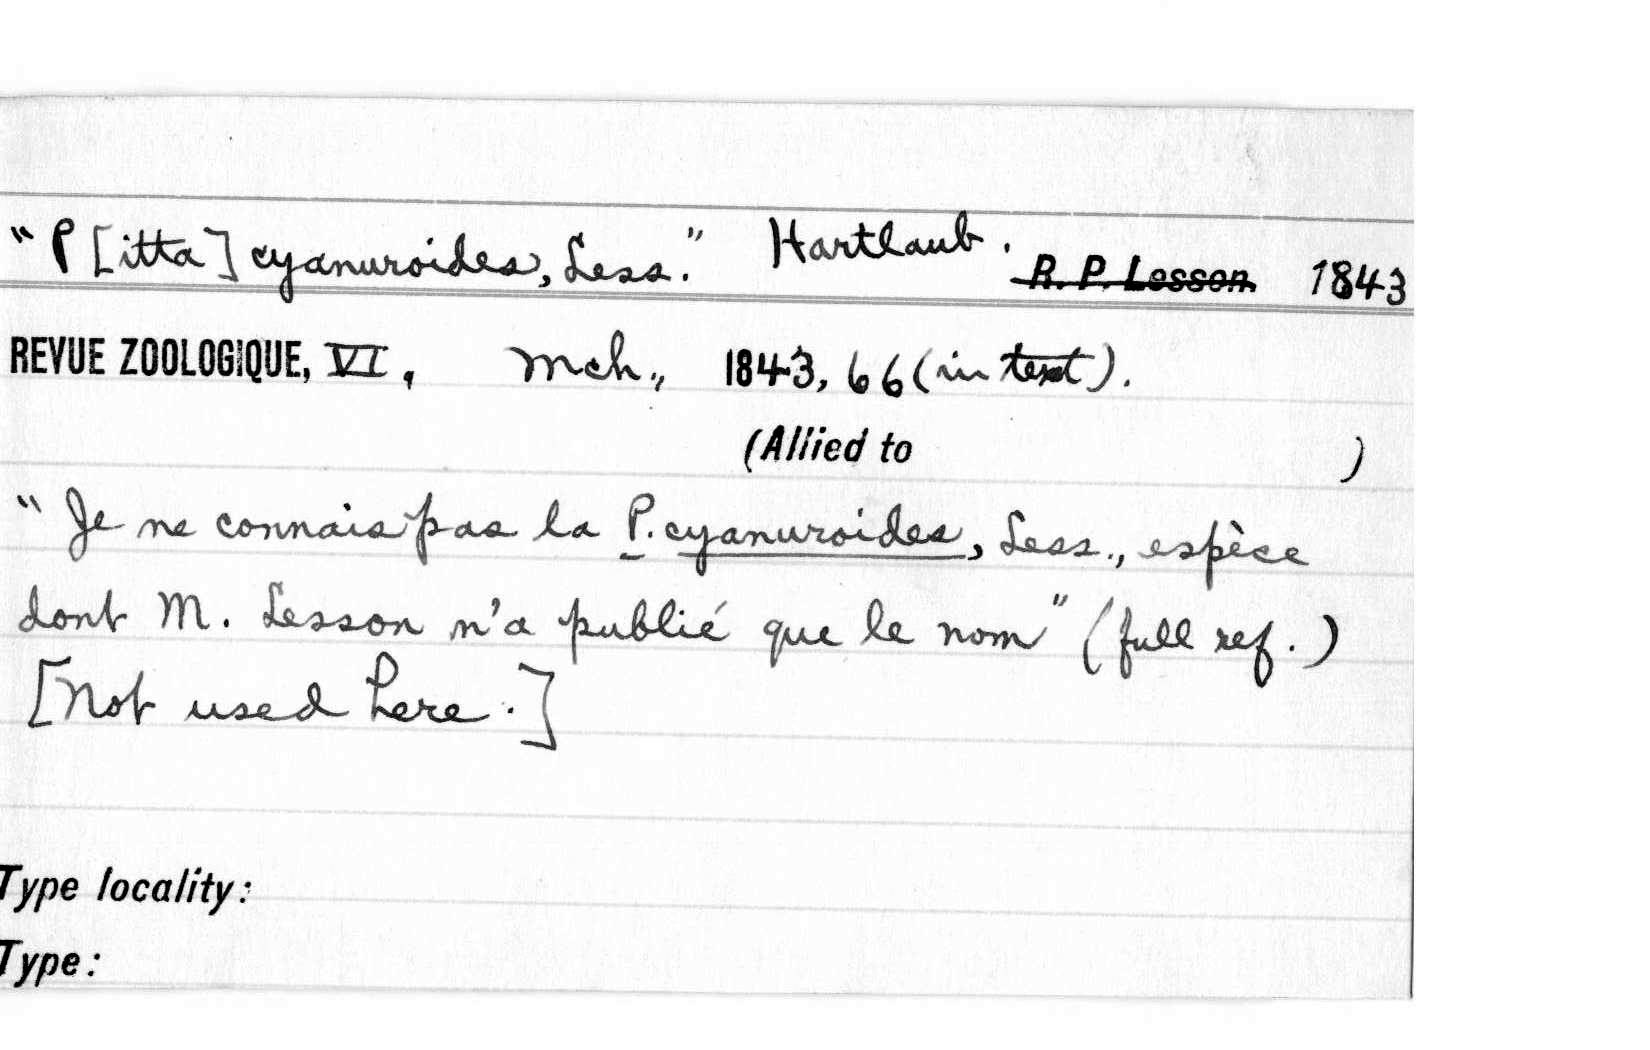 "P[itta] cyanuroides, Less." Hartlaub. R. P. Lesson 1843
REVUE ZOOLOGIQUE, VI, Mch., 1843, 66 (in text).
(Allied to )
"Je ne connais pas la P. cyanuroides, Less., espèce
dont M. Lesson n'a publié que le nom" (full ref.)
[Not used here.]
Type locality:
Type: